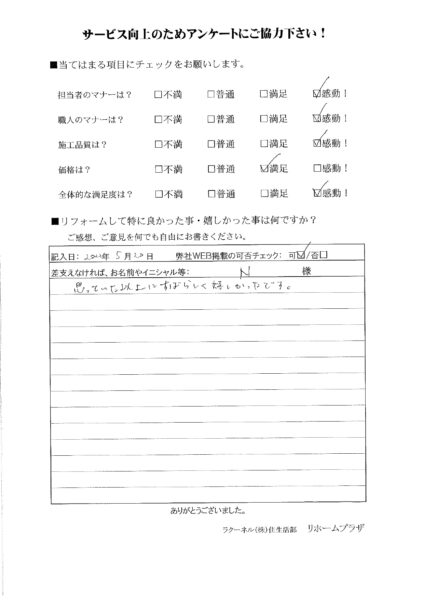 サービス向上のためアンケートにご協力下さい！
■当てはまる項目にチェックをお願いします。
担当者のマナーは？ □不満 □普通 □満足 ☑感動！
職人のマナーは？ □不満 □普通 □満足 ☑感動！
施工品質は？ □不満 □普通 □満足 ☑感動！
価格は？ □不満 □普通 ☑満足 □感動！
全体的な満足度は？ □不満 □普通 □満足 ☑感動！
■リフォームして特に良かった事・嬉しかった事は何ですか？
ご感想、ご意見を何でも自由にお書きください。
記入日：年 5月20日 弊社WEB掲載の可否チェック： 可☑/否□
差支えなければ、お名前やイニシャル等： N 様
思っていた以上にすばらしく嬉しかったです。
ありがとうございました。
ラクーネル（株）住生活部 リホームプラザ